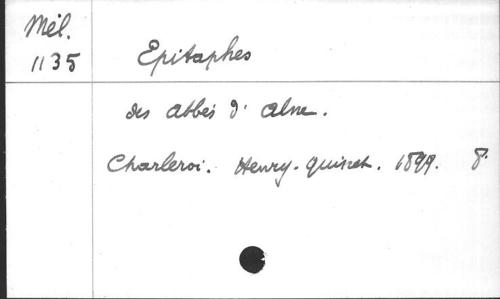 Mél.
1135
Epitaphes
des abbés d'Alne.
Charleroi. Henry-Quinet. 1899. 8°